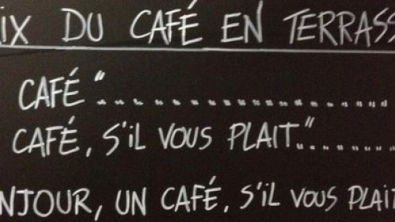 IX DU CAFÉ EN TERRASS
CAFÉ "..............................
CAFÉ, S'IL VOUS PLAIT"..........
NJOUR, UN CAFÉ, S'IL VOUS PLAIT